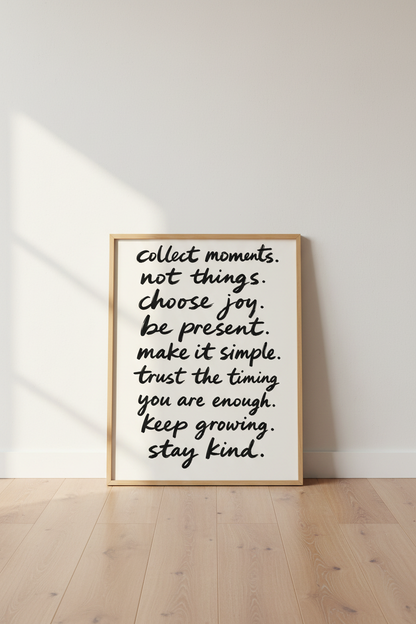 collect moments.
not things.
choose joy.
be present.
make it simple.
trust the timing
you are enough.
keep growing.
stay kind.